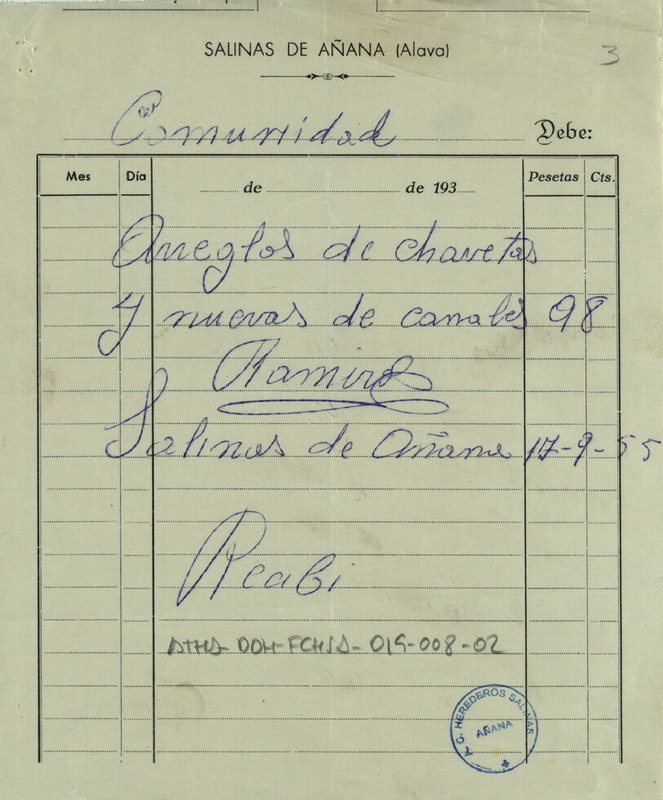 SALINAS DE AÑANA (Alava)
3
Comunidad Debe:
Mes Día de de 193 Pesetas Cts.
Arreglos de chavetas
y nuevas de canales 98
Ramiro
Salinas de Añana 17-9-55
Recibi
ATHA-DOH-FCHSA-019-008-02
G. HEREDEROS SALINAS
AÑANA